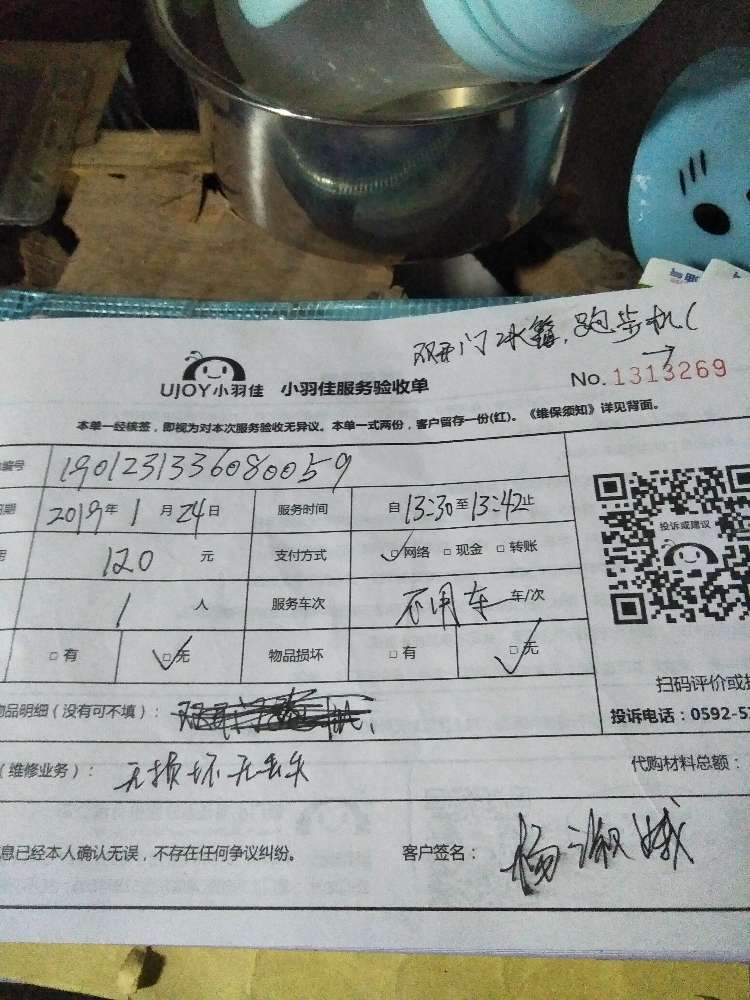 双开门冰箱,跑步机(
UJOY小羽佳 小羽佳服务验收单
No. 1313269
本单一经核签,即视为对本次服务验收无异议。本单一式两份,客户留存一份(红)。《维保须知》详见背面。
编号 1901231336080059
期 2019年1月24日 服务时间 自13:30至13:42止
120 元 支付方式 ☑网络 □现金 □转账
投诉或建议
1 人 服务车次 不用车 车/次
□有 ☑无 物品损坏 □有 ☑无
扫码评价或
品明细(没有可不填):
投诉电话:0592-5
(维修业务): 无损坏无丢失 代购材料总额:
息已经本人确认无误,不存在任何争议纠纷。 客户签名: 杨淑娥